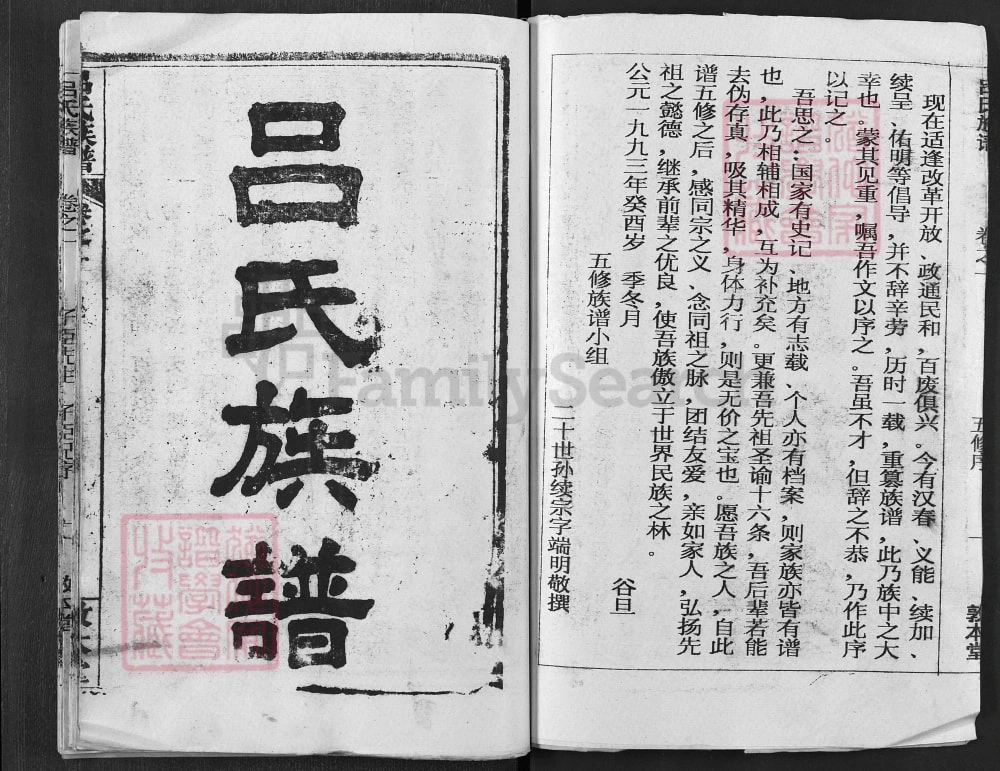 现在适逢改革开放、政通民和，百废俱兴。今有汉春、义能、续加、
续呈、佑明等倡导，并不辞辛劳，历时一载，重篡族谱，此乃族中之大
幸也。蒙其见重，嘱吾作文以序之。吾虽不才，但辞之不恭，乃作此序
以记之。
吾思之：国家有史记、地方有志载、个人亦有档案，则家族亦皆有谱
也，此乃相辅相成，互为补充矣。更兼吾先祖圣谕十六条，吾后辈若能
去伪存真，吸其精华，身体力行，则是无价之宝也。愿吾族之人，自此
谱五修之后，感同宗之义、念同祖之脉，团结友爱，亲如家人，弘扬先
祖之懿德，继承前辈之优良，使吾族傲立于世界民族之林。
公元一九九三年癸酉岁 季冬月 谷旦
五修族谱小组 二十世孙续宗字端明敬撰
吕氏族谱 卷之一 五修序 一 敦本堂
吕氏族譜
吕氏族谱 卷之一
FamilySearch